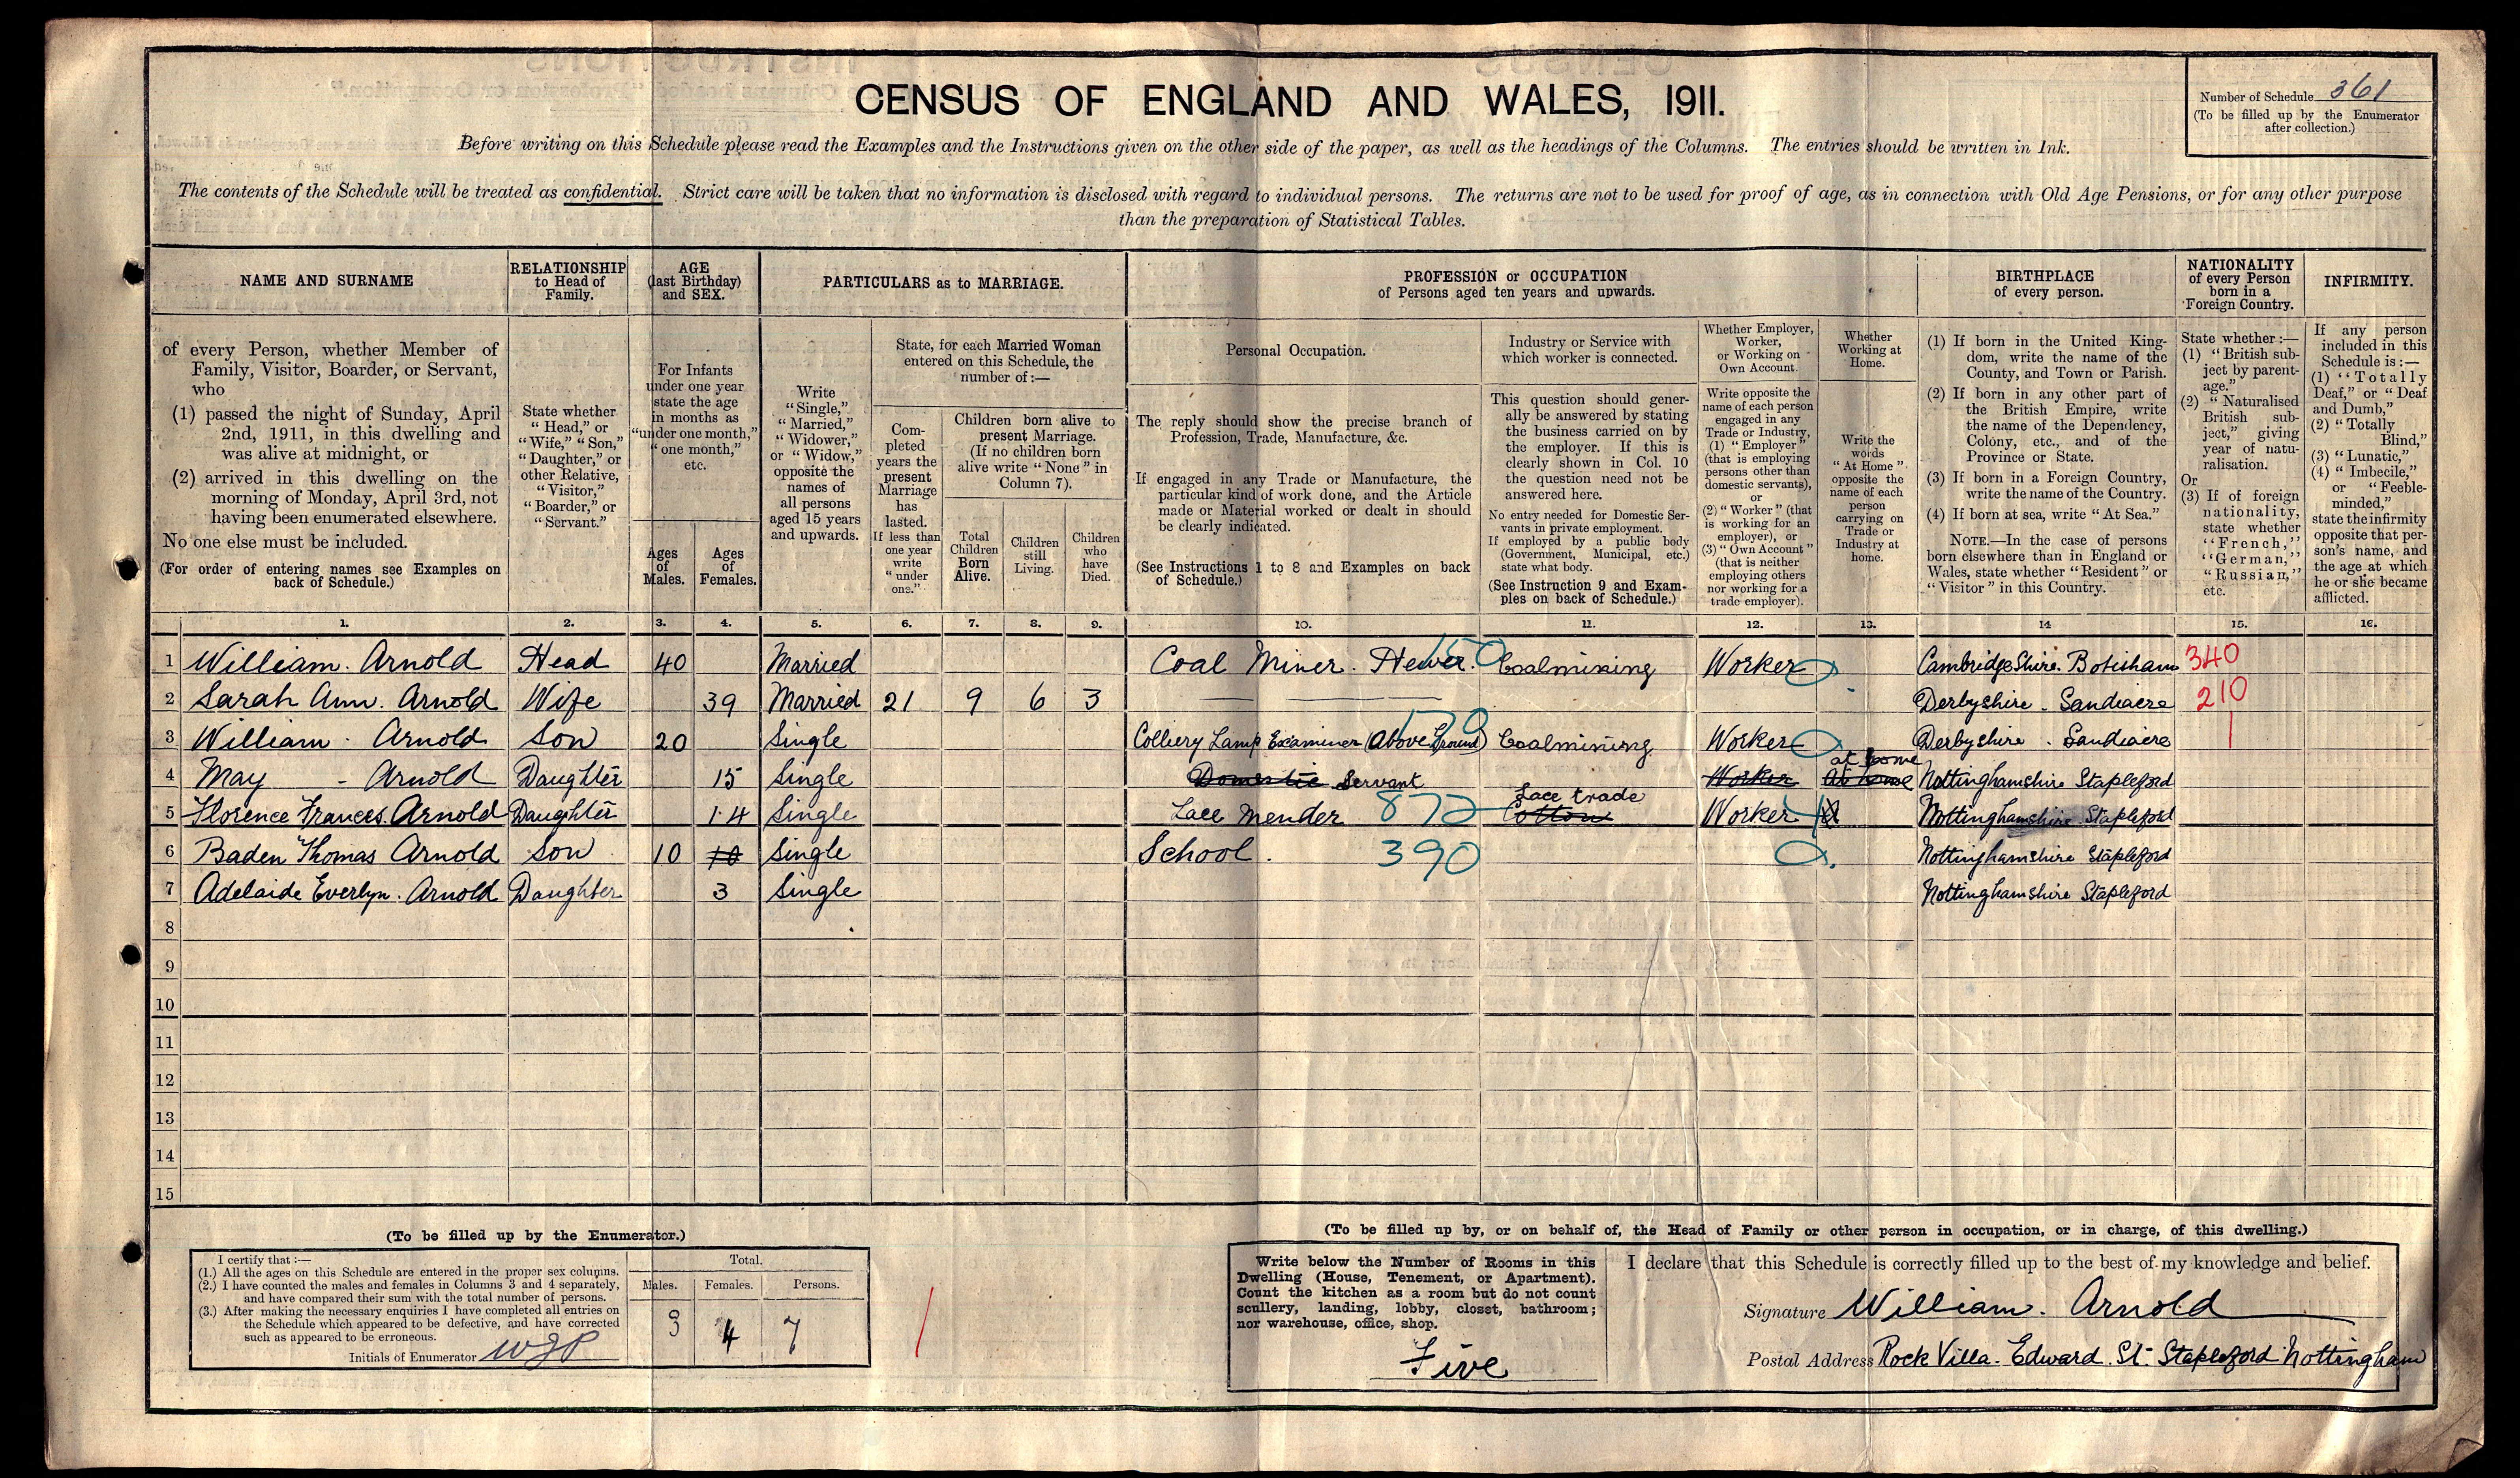 CENSUS OF ENGLAND AND WALES, 1911.
Number of Schedule 361
(To be filled up by the Enumerator
after collection.)
Before writing on this Schedule please read the Examples and the Instructions given on the other side of the paper, as well as the headings of the Columns. The entries should be written in Ink.
The contents of the Schedule will be treated as confidential. Strict care will be taken that no information is disclosed with regard to individual persons. The returns are not to be used for proof of age, as in connection with Old Age Pensions, or for any other purpose
than the preparation of Statistical Tables.
NAME AND SURNAME
of every Person, whether Member of
Family, Visitor, Boarder, or Servant,
who
(1) passed the night of Sunday, April
2nd, 1911, in this dwelling and
was alive at midnight, or
(2) arrived in this dwelling on the
morning of Monday, April 3rd, not
having been enumerated elsewhere.
No one else must be included.
(For order of entering names see Examples on
back of Schedule.)
RELATIONSHIP
to Head of
Family.
State whether
"Head," or
"Wife," "Son,"
"Daughter," or
other Relative,
"Visitor,"
"Boarder," or
"Servant."
AGE
(last Birthday)
and SEX.
For Infants
under one year
state the age
in months as
"under one month,"
"one month,"
etc.
Ages
of
Males.
Ages
of
Females.
PARTICULARS as to MARRIAGE.
Write
"Single,"
"Married,"
"Widower,"
or "Widow,"
opposite the
names of
all persons
aged 15 years
and upwards.
State, for each Married Woman
entered on this Schedule, the
number of:—
Com-
pleted
years the
present
Marriage
has
lasted.
If less than
one year
write
"under
one."
Children born alive to
present Marriage.
(If no children born
alive write "None" in
Column 7).
Total
Children
Born
Alive.
Children
still
Living.
Children
who
have
Died.
PROFESSION or OCCUPATION
of Persons aged ten years and upwards.
Personal Occupation.
The reply should show the precise branch of
Profession, Trade, Manufacture, &c.
If engaged in any Trade or Manufacture, the
particular kind of work done, and the Article
made or Material worked or dealt in should
be clearly indicated.
(See Instructions 1 to 8 and Examples on back
of Schedule.)
Industry or Service with
which worker is connected.
This question should gener-
ally be answered by stating
the business carried on by
the employer. If this is
clearly shown in Col. 10
the question need not be
answered here.
No entry needed for Domestic Ser-
vants in private employment.
If employed by a public body
(Government, Municipal, etc.)
state what body.
(See Instruction 9 and Exam-
ples on back of Schedule.)
Whether Employer,
Worker,
or Working on
Own Account.
Write opposite the
name of each person
engaged in any
Trade or Industry,
(1) "Employer"
(that is employing
persons other than
domestic servants),
or
(2) "Worker" (that
is working for an
employer), or
(3) "Own Account"
(that is neither
employing others
nor working for a
trade employer).
Whether
Working at
Home.
Write the
words
"At Home"
opposite the
name of each
person
carrying on
Trade or
Industry at
home.
BIRTHPLACE
of every person.
(1) If born in the United King-
dom, write the name of the
County, and Town or Parish.
(2) If born in any other part of
the British Empire, write
the name of the Dependency,
Colony, etc., and of the
Province or State.
(3) If born in a Foreign Country,
write the name of the Country.
(4) If born at sea, write "At Sea."
NOTE.—In the case of persons
born elsewhere than in England or
Wales, state whether "Resident" or
"Visitor" in this Country.
NATIONALITY
of every Person
born in a
Foreign Country.
State whether:—
(1) "British sub-
ject by parent-
age."
(2) "Naturalised
British sub-
ject," giving
year of natu-
ralisation.
Or
(3) If of foreign
nationality,
state whether
"French,"
"German,"
"Russian,"
etc.
INFIRMITY.
If any person
included in this
Schedule is:—
(1) "Totally
Deaf," or "Deaf
and Dumb,"
(2) "Totally
Blind,"
(3) "Lunatic,"
(4) "Imbecile,"
or "Feeble-
minded,"
state the infirmity
opposite that per-
son's name, and
the age at which
he or she became
afflicted.
1. 2. 3. 4. 5. 6. 7. 8. 9. 10. 11. 12. 13. 14 15. 16.
1 William. Arnold Head 40 Married Coal Miner. Hewer. 150 Coalmining Worker Cambridgeshire. Botisham 340
2 Sarah Ann. Arnold Wife 39 Married 21 9 6 3 Derbyshire - Sandiacre 210
3 William - Arnold Son 20 Single Colliery Lamp Examiner (Above Ground) 170 Coalmining Worker Derbyshire. Sandiacre
at home
4 May - Arnold Daughter 15 Single Domestic Servant Worker At home Nottinghamshire Stapleford
Lace trade
5 Florence Frances. Arnold Daughter 14 Single Lace Mender 872 Cotton Worker Nottinghamshire Stapleford
6 Baden Thomas Arnold Son 10 10 Single School. 390 Nottinghamshire Stapleford
7 Adelaide Everlyn. Arnold Daughter 3 Single Nottinghamshire Stapleford
8
9
10
11
12
13
14
15
(To be filled up by the Enumerator.)
I certify that:—
(1.) All the ages on this Schedule are entered in the proper sex columns.
(2.) I have counted the males and females in Columns 3 and 4 separately,
and have compared their sum with the total number of persons.
(3.) After making the necessary enquiries I have completed all entries on
the Schedule which appeared to be defective, and have corrected
such as appeared to be erroneous.
Initials of Enumerator WJP
Total.
Males. Females. Persons.
3 4 7
(To be filled up by, or on behalf of, the Head of Family or other person in occupation, or in charge, of this dwelling.)
Write below the Number of Rooms in this
Dwelling (House, Tenement, or Apartment).
Count the kitchen as a room but do not count
scullery, landing, lobby, closet, bathroom;
nor warehouse, office, shop.
Five
I declare that this Schedule is correctly filled up to the best of my knowledge and belief.
Signature William. Arnold
Postal Address Rock Villa. Edward. St. Stapleford Nottingham